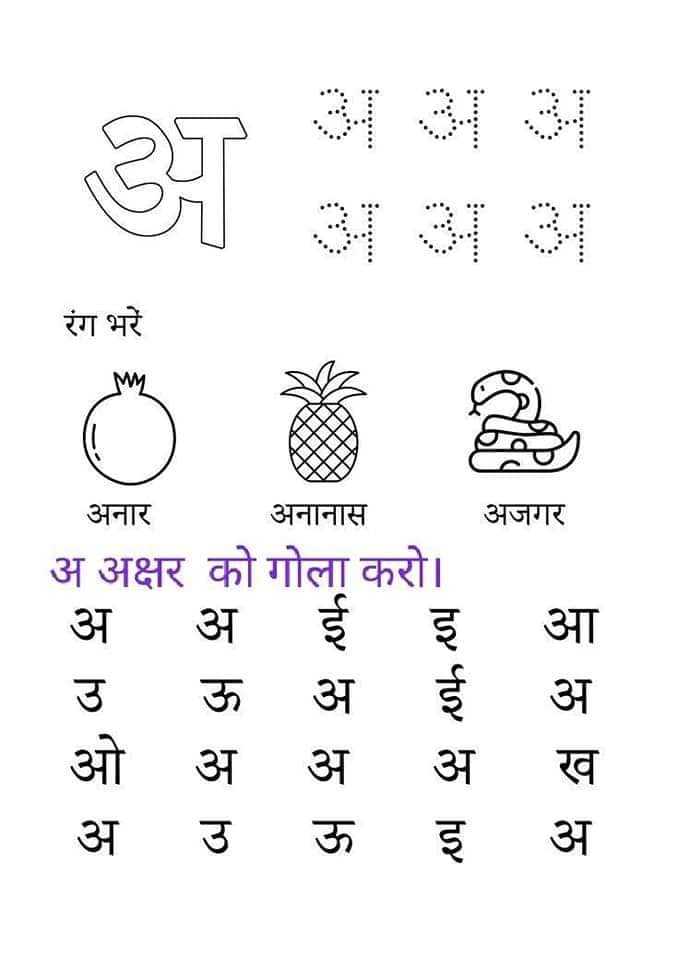 अ अ अ अ
अ अ अ
रंग भरें
अनार अनानास अजगर
अ अक्षर को गोला करो।
अ अ ई इ आ
उ ऊ अ ई अ
ओ अ अ अ ख
अ उ ऊ इ अ